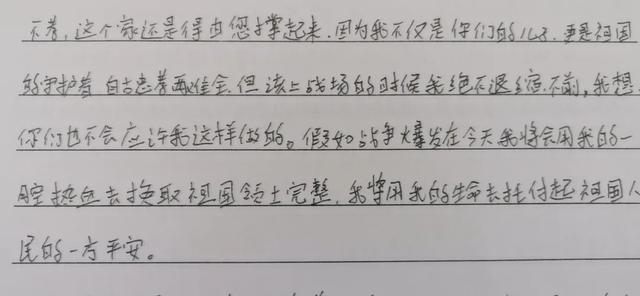 不着，这个家还是得由您撑起来.因为我不仅是你们的儿子.更是祖国
的守护着 自古忠孝难准全.但该上战场的时候我绝不退缩不前,我想.
你们也不会应许我这样做的。假如战争爆发在今天我将会用我的一
腔热血去换取祖国领土完整.我将用我的生命去托付起祖国人
民的一方平安。